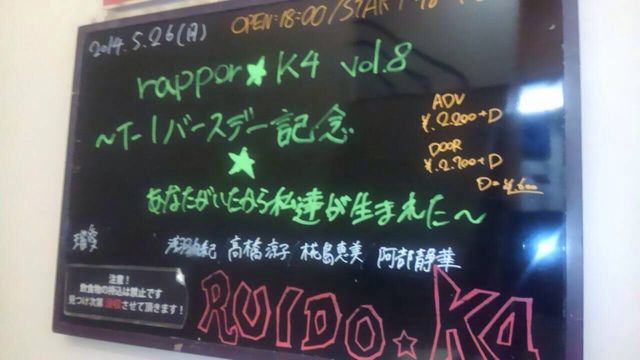 2014.5.26(月)
OPEN:18:00/START
rappor★K4 vol.8
～T-1バースデー記念
★
あなたがいたから私達が生まれた～
ADV
¥.2200+D
DOOR
¥.2700+D
D=¥.600
高橋涼子 椛島恵美 阿部静華
注意!
飲食物の持込は禁止です
見つけ次第 没収させて頂きます!
RUIDO★K4